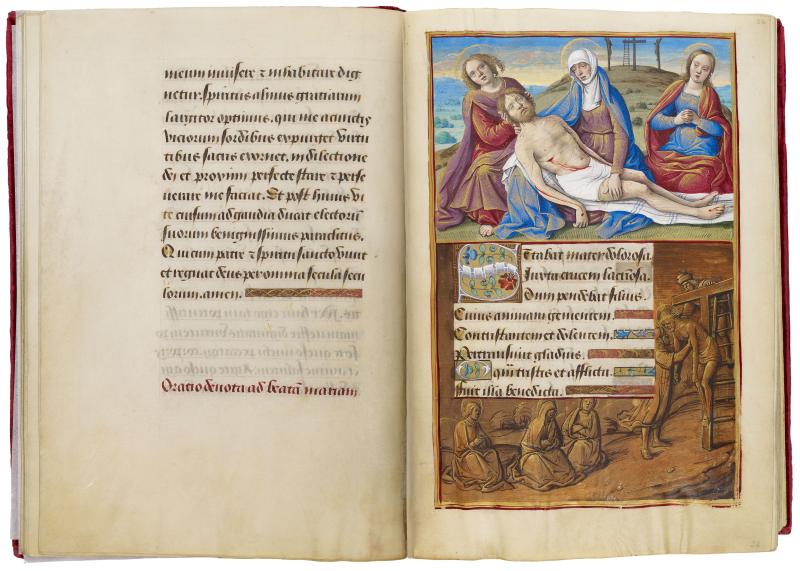 meum inuisere ⁊ inhabitare dig
netur. Spiritus almus gratiarum
largitor optimus. qui me a cunctis
viciorum sordibus expurget virtu
tibus sacris exornet. in dilectione
dei et proximi perfecte stare ⁊ perse
uerare me faciat. Et post huius vi
te cursum ad gaudia ducat electorū
suorum benignissimus paraclitus.
Qui cum patre ⁊ spiritu sancto viuit
et regnat deus per omnia secula secu
lorum. amen.
Oratio deuota ad beatā mariam
Stabat mater dolorosa.
Iuxta crucem lacrīosa.
Dum pendebat filius.
Cuius animam gementem.
Contristantem et dolentem.
Pertransiuit gladius.
O quā tristis et afflicta.
fuit illa benedicta.